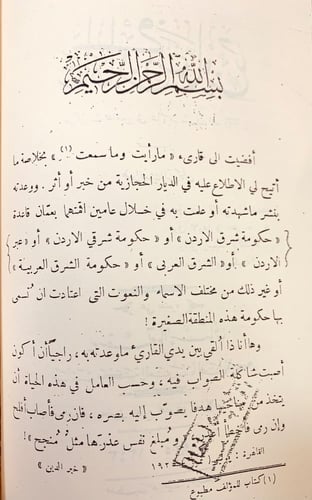 بسم الله الرحمن الرحيم
أفضيت الى قارىء « مارأيت وما سمعت (١) » بخلاصة ما
أتيح لي الاطلاع عليه في الديار الحجازية من خبر أو أثر . ووعدته
بنشر ماشهدته أو علمت به في خلال عامين اقمتهما بعمّان قاعدة
« حكومة شرق الاردن » أو « حكومة شرقي الاردن » أو « عبر
الاردن » أو « الشرق العربى » أو « حكومة الشرق العربية »
أو غير ذلك من مختلف الاسماء والنعوت التى اعتادت ان تُسمى
بها حكومة هذه المنطقة الصغيرة !
وهاأنا ذا ألقي بين يدي القارىء ماوعدته به ، راجياً أن أكون
أصبت شاكلة الصواب فيه ، وحسب العامل في هذه الحياة أن
يتخذ من هدفا يصوّب إليه بصره ، فان رمى فأصاب أفلح
وان رمى فأخطأ ومُبلغ نفس عذرَها مثلُ مُنجح »!
القاهرة : ١٩٢ « خير الدين »
(١) كتاب للمؤلف مطبوع